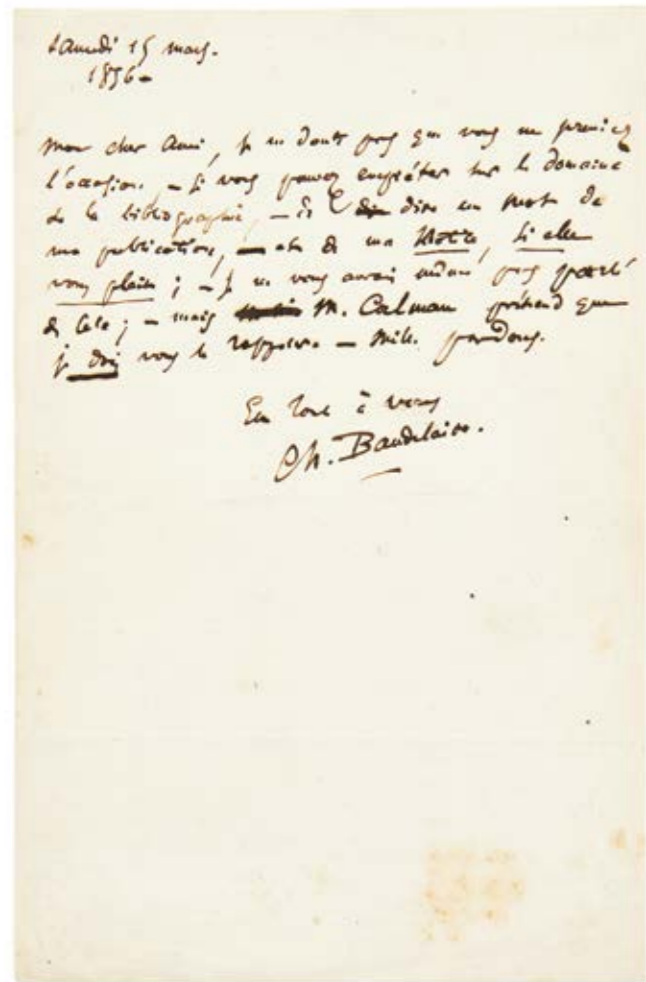 Samedi 15 mars.
1856 –
Mon cher Ami, je ne doute pas que vous ne preniez
l'occasion, – si vous pouvez empiéter sur le domaine
de la bibliographie, – de dire un mot de
ma publication, – et de ma Notice, si elle
vous plait ; – je ne vous avais même pas parlé
de cela ; – mais M. Calman prétend que
je dois vous le rappeler. – Mille pardons.
Tout à vous
Ch. Baudelaire.